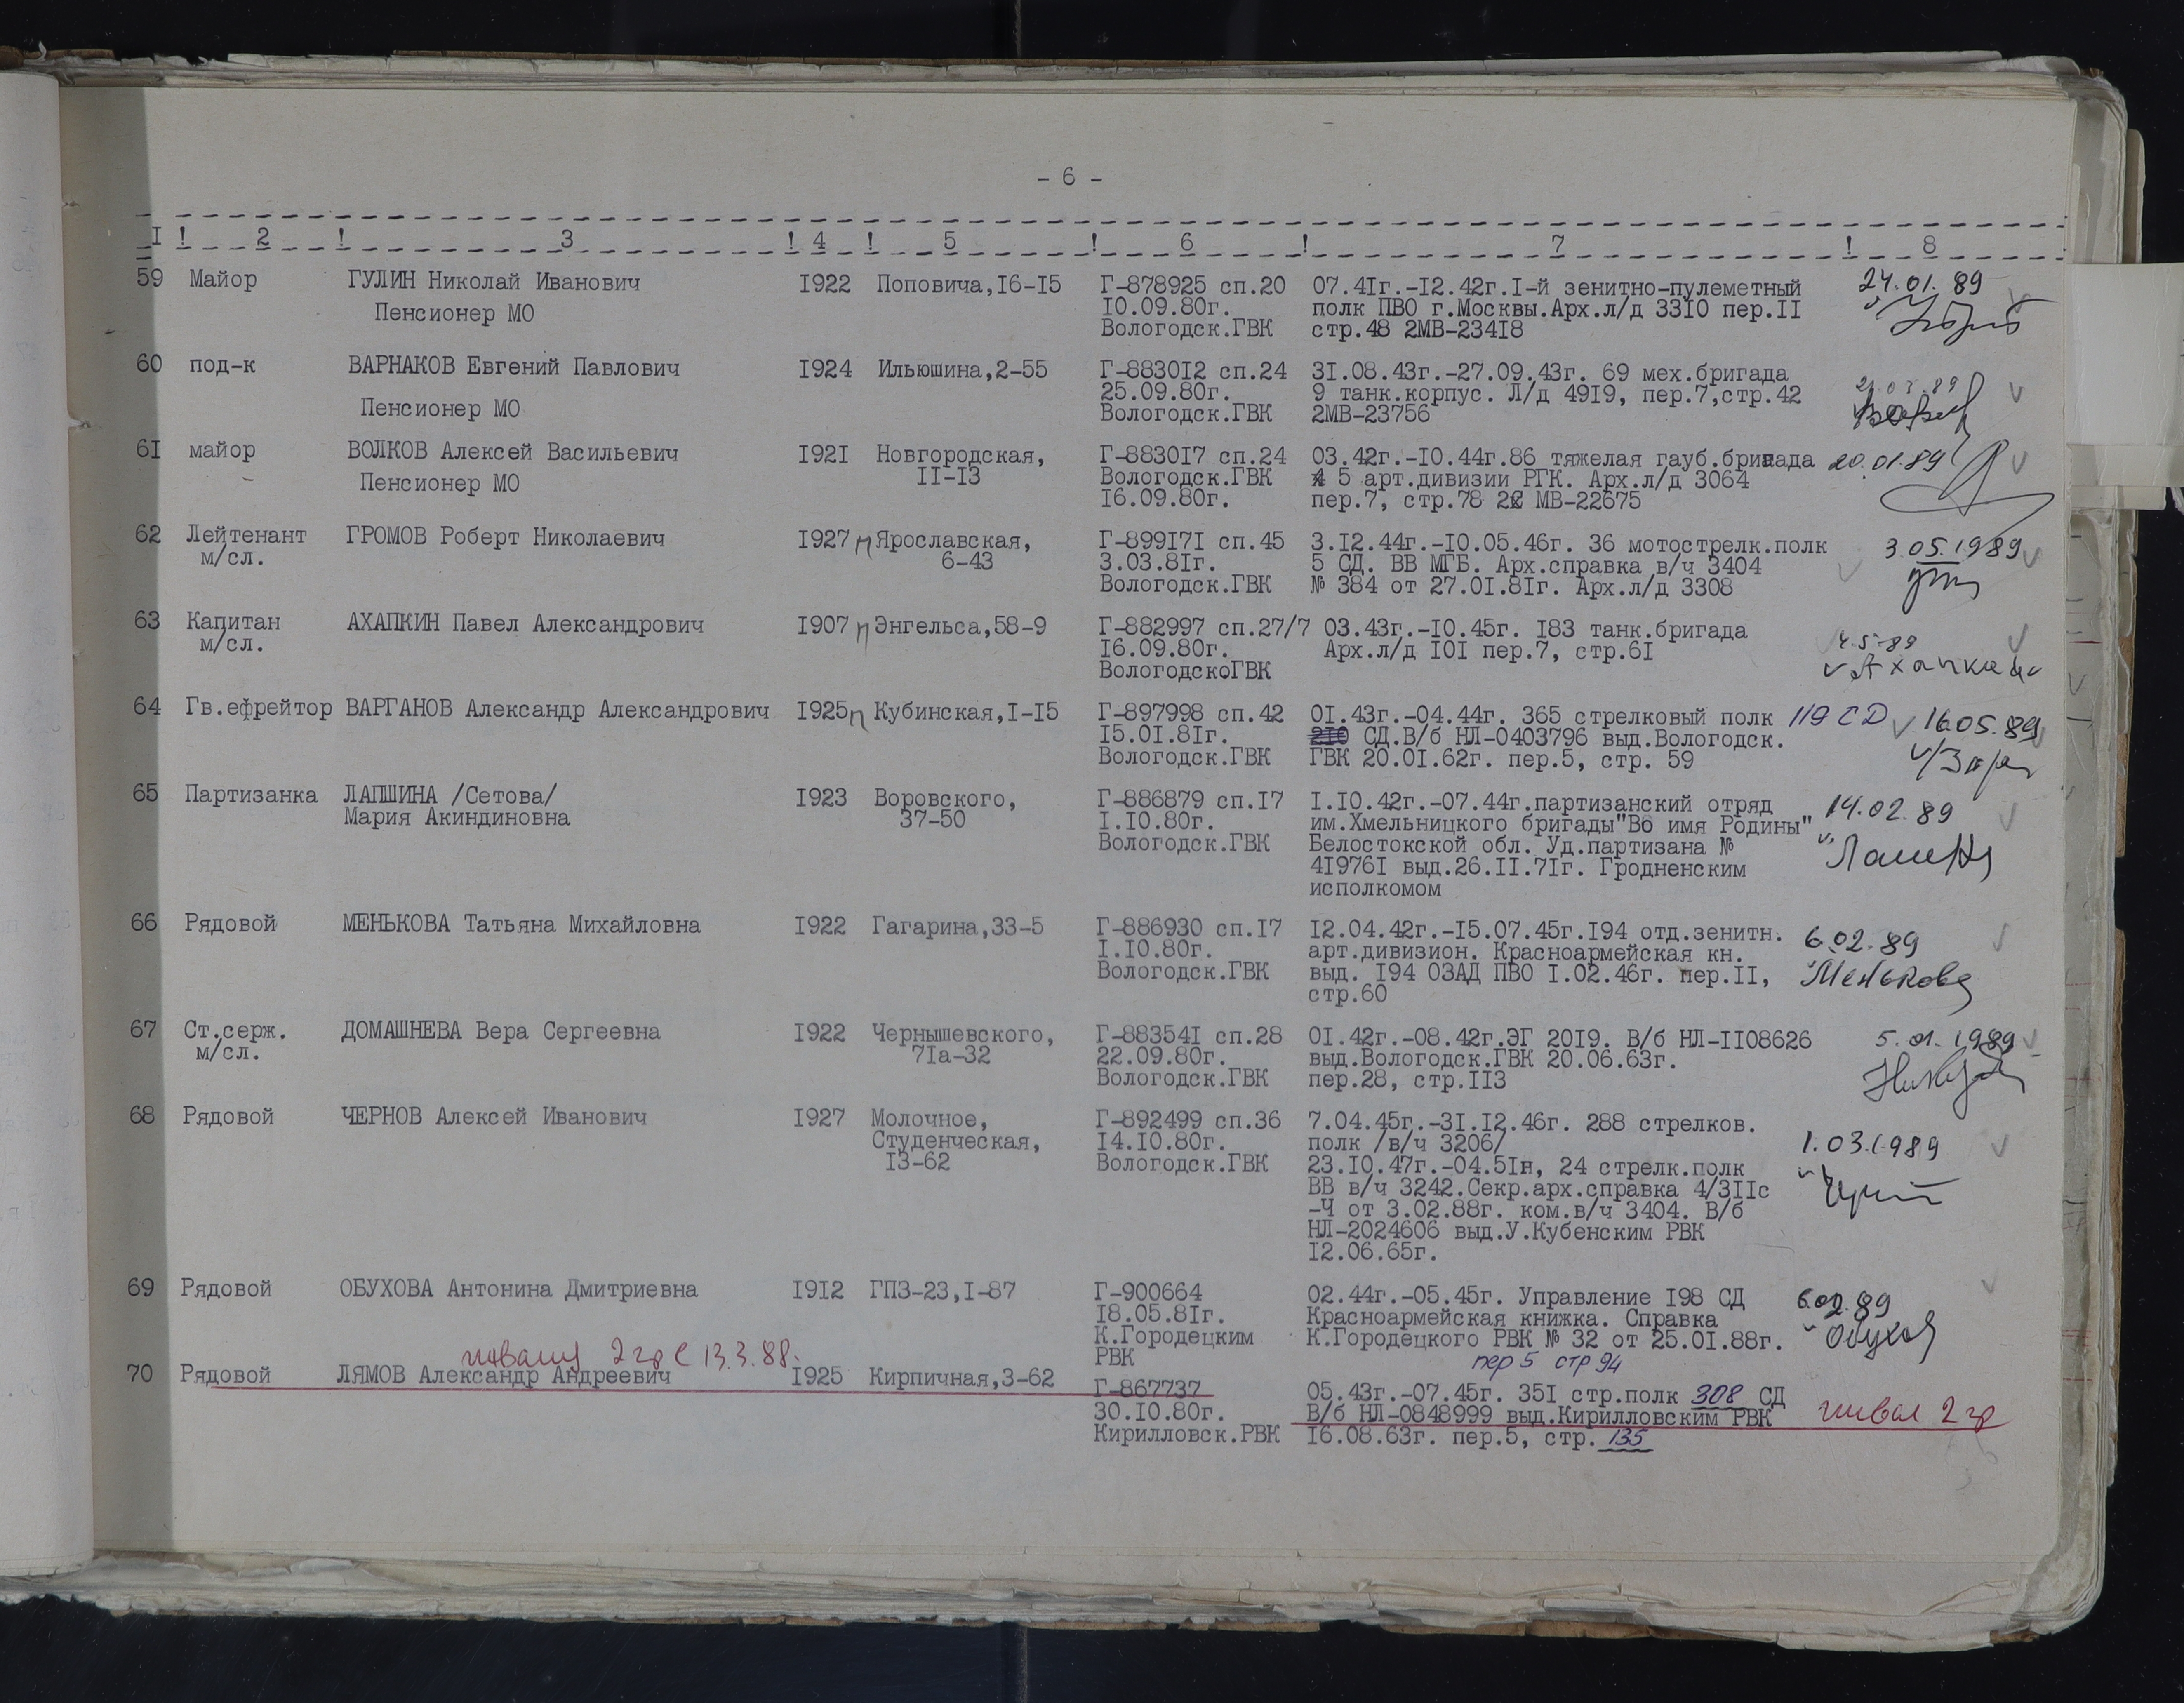 - 6 -
I ! 2 ! 3 ! 4 ! 5 ! 6 ! 7 ! 8
59 Майор ГУЛИН Николай Иванович I922 Поповича,I6-I5 Г-878925 сп.20 07.4Iг.-I2.42г.I-й зенитно-пулеметный 24.01.89
Пенсионер МО I0.09.80г. полк ПВО г.Москвы.Арх.л/д 33I0 пер.II
Вологодск.ГВК стр.48 2МВ-234I8
60 под-к ВАРНАКОВ Евгений Павлович I924 Ильюшина,2-55 Г-8830I2 сп.24 3I.08.43г.-27.09.43г. 69 мех.бригада
Пенсионер МО 25.09.80г. 9 танк.корпус. Л/д 49I9, пер.7,стр.42
Вологодск.ГВК 2МВ-23756
6I майор ВОЛКОВ Алексей Васильевич I92I Новгородская, Г-8830I7 сп.24 03.42г.-I0.44г.86 тяжелая гауб.бригада 20.01.89
Пенсионер МО II-I3 Вологодск.ГВК 5 арт.дивизии РГК. Арх.л/д 3064
I6.09.80г. пер.7, стр.78 2 МВ-22675
62 Лейтенант ГРОМОВ Роберт Николаевич I927 п Ярославская, Г-899I7I сп.45 3.I2.44г.-I0.05.46г. 36 мотострелк.полк 3.05.1989
м/сл. 6-43 3.03.8Iг. 5 СД. ВВ МГБ. Арх.справка в/ч 3404
Вологодск.ГВК № 384 от 27.0I.8Iг. Арх.л/д 3308
63 Капитан АХАПКИН Павел Александрович I907 п Энгельса,58-9 Г-882997 сп.27/7 03.43г.-I0.45г. I83 танк.бригада 4.5.89
м/сл. I6.09.80г. Арх.л/д I0I пер.7, стр.6I
ВологодскоГВК
64 Гв.ефрейтор ВАРГАНОВ Александр Александрович I925 п Кубинская,I-I5 Г-897998 сп.42 0I.43г.-04.44г. 365 стрелковый полк 119 СД 16.05.89
I5.0I.8Iг. 2I0 СД.В/б НЛ-0403796 выд.Вологодск.
Вологодск.ГВК ГВК 20.0I.62г. пер.5, стр. 59
65 Партизанка ЛАПШИНА /Сетова/ I923 Воровского, Г-886879 сп.I7 I.I0.42г.-07.44г.партизанский отряд 14.02.89
Мария Акиндиновна 37-50 I.I0.80г. им.Хмельницкого бригады"Во имя Родины"
Вологодск.ГВК Белостокской обл. Уд.партизана №
4I976I выд.26.II.7Iг. Гродненским
исполкомом
66 Рядовой МЕНЬКОВА Татьяна Михайловна I922 Гагарина,33-5 Г-886930 сп.I7 I2.04.42г.-I5.07.45г.I94 отд.зенитн. 6.02.89
I.I0.80г. арт.дивизион. Красноармейская кн.
Вологодск.ГВК выд. I94 ОЗАД ПВО I.02.46г. пер.II, Менькова
стр.60
67 Ст.серж. ДОМАШНЕВА Вера Сергеевна I922 Чернышевского, Г-88354I сп.28 0I.42г.-08.42г.ЭГ 20I9. В/б НЛ-II08626 5.01.1989
м/сл. 7Iа-32 22.09.80г. выд.Вологодск.ГВК 20.06.63г.
Вологодск.ГВК пер.28, стр.II3
68 Рядовой ЧЕРНОВ Алексей Иванович I927 Молочное, Г-892499 сп.36 7.04.45г.-3I.I2.46г. 288 стрелков.
Студенческая, I4.I0.80г. полк /в/ч 3206/ 1.03.1989
I3-62 Вологодск.ГВК 23.I0.47г.-04.5Iн, 24 стрелк.полк
ВВ в/ч 3242.Секр.арх.справка 4/3IIс
-Ч от 3.02.88г. ком.в/ч 3404. В/б
НЛ-2024606 выд.У.Кубенским РВК
I2.06.65г.
69 Рядовой ОБУХОВА Антонина Дмитриевна I9I2 ГПЗ-23,I-87 Г-900664 02.44г.-05.45г. Управление I98 СД 6.02.89
I8.05.8Iг. Красноармейская книжка. Справка
К.Городецким К.Городецкого РВК № 32 от 25.0I.88г. Обухов
РВК пер 5 стр 94
2 гр с 13.3.88.
70 Рядовой ЛЯМОВ Александр Андреевич I925 Кирпичная,3-62 Г-867737 05.43г.-07.45г. 35I стр.полк 308 СД
30.I0.80г. В/б НЛ-0848999 выд.Кирилловским РВК инвал 2 гр
Кирилловск.РВК I6.08.63г. пер.5, стр. 135